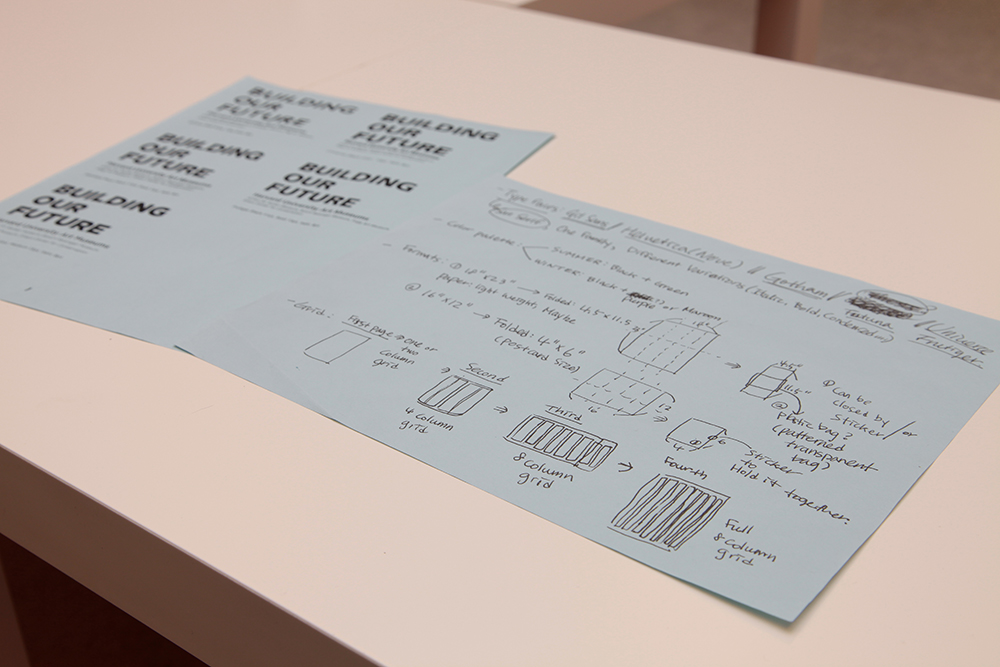 BUILDING
OUR
FUTURE
BUILDING
OUR
FUTURE
BUILDING
OUR
FUTURE
BUILDING
OUR
FUTURE
BUILDING
OUR
FUTURE
- Type Faces: Gill Sans / Helvetica (Neue) // Gotham /
/ Whitney
San Serif One Family, Different Variations (Italic, Bold, Condensed)
- Color palette: SUMMER: Black + Green
WINTER: Black + purple or Maroon
- Formats: ① 4" x 23" → Folded: 4.5 x 11.5
paper: light weight, Maybe
② 16" x 12" → Folded: 4" x 6"
(postcard size)
- Grids: First page → one or
two
column
grid
Second
4 column
grid
Third
8 column
grid
Fourth
Full
8 column
grid
16
12
4.5"
11.5"
① Can be
closed by
Sticker / or
② plastic bag?
(patterned
transparent
bag)
4
6
Sticker
to
Hold it together.